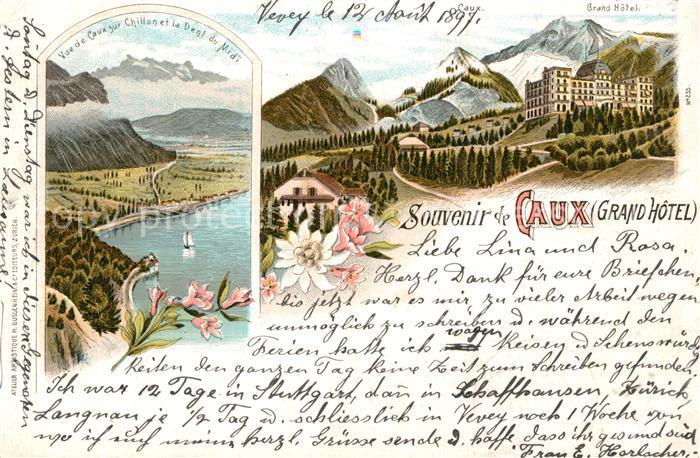 Vevey le 12 Août 1897.
Vue de Caux sur Chillon et la Dent du Midi
Caux.
Grand Hôtel.
No 255.
Souvenir de CAUX (GRAND HÔTEL)
Liebe Lina und Rosa.
Herzl. Dank für eure Briefchen
bis jetzt war es mir zu vieler Arbeit wegen
unmöglich zu schreiben u. während den
Ferien hatte ich wegen Reisen u. Sehenswürdig
keiten den ganzen Tag keine Zeit zum Schreiben gefunden.
Ich war 12 Tage in Stuttgart, dan in Schaffhausen, Zürich
Langnau je 1/2 Tag u. schliesslich in Vevey noch 1 Woche von
wo ich euch meine herzl. Grüsse sende u. hoffe dass ihr gesund seid
Frau E. Horlacher.
Sontag u. Dienstag war ich in diesen Gegenden
u. gestern in Lausanne
ATELIER ARTISTIQUE H. GUGGENHEIM & Co EDITEURS, ZURICH.